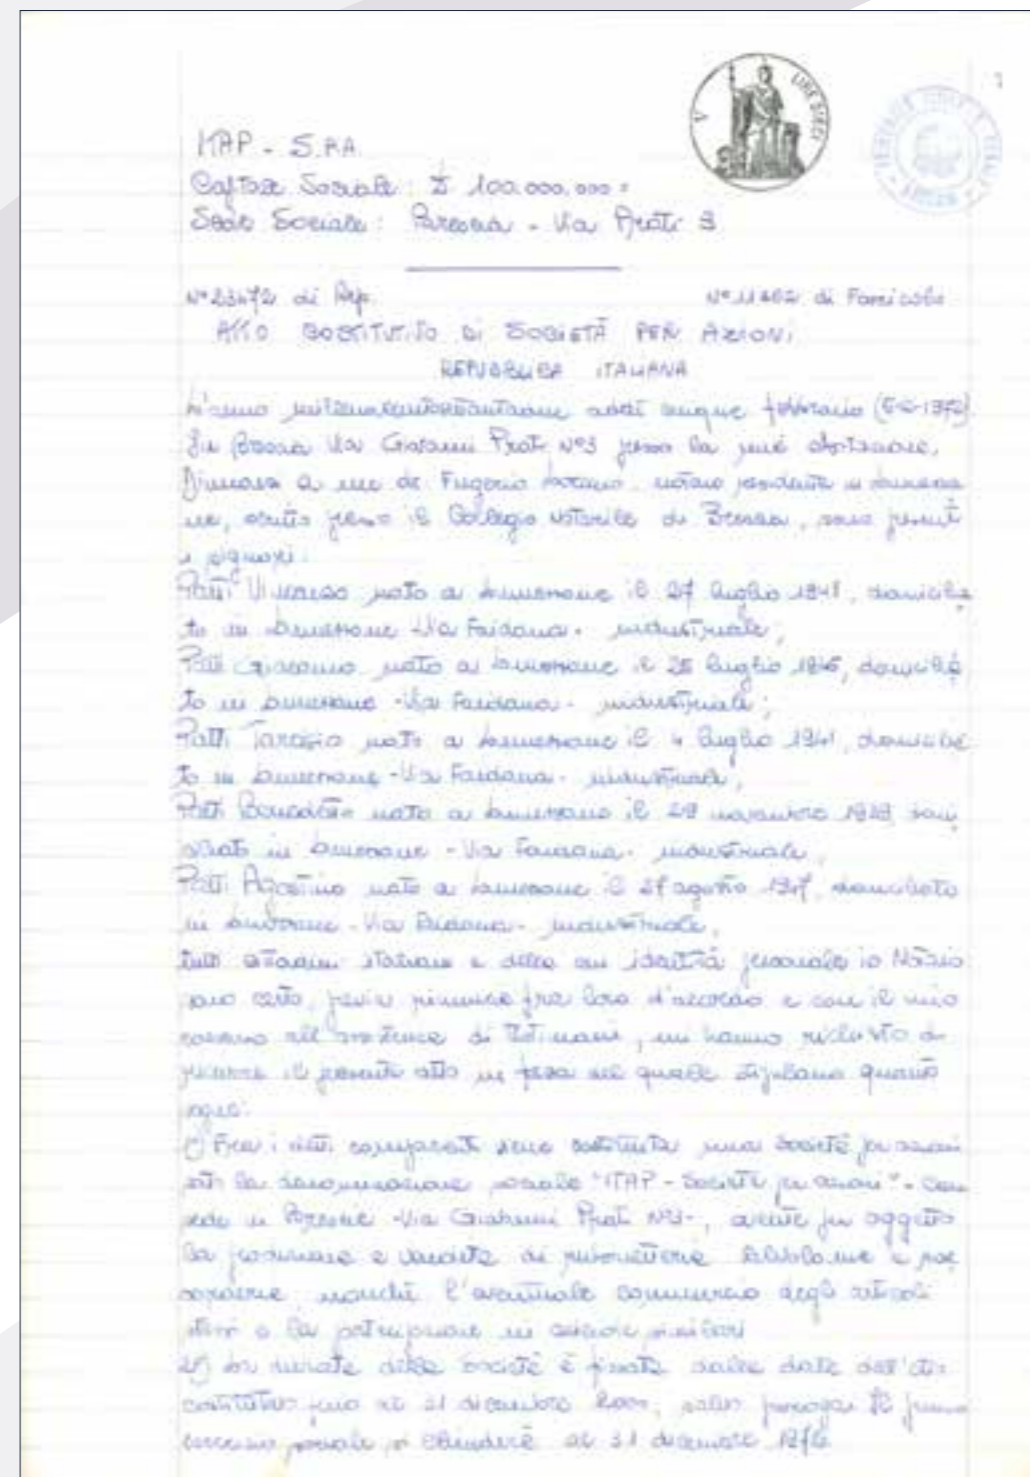 ITAP - S.P.A.
Capitale Sociale: £ 100.000.000=
Sede Sociale: Brescia - Via Prati 3
LIRE DIECI
V
N° di Rep. N° di Fascicolo
ATTO COSTITUTIVO DI SOCIETÀ PER AZIONI
REPUBBLICA ITALIANA
L'anno addì cinque febbraio
In Brescia Via Giovanni Prati N°3 presso la mia abitazione,
Dinnanzi a me dr. notaio residente in Lumezza
ne, iscritto presso il Collegio Notarile di Brescia, sono presenti
i signori:
Patti Vincenzo nato a Lumezzane il 27 luglio domicilia
to in Lumezzane - Via Faidana - industriale;
Patti Giacomo nato a Lumezzane il 25 luglio domicilia
to in Lumezzane - Via Faidana - industriale;
Patti Tarcisio nato a Lumezzane il 4 luglio 1941, domicilia
to in Lumezzane - Via Faidana - industriale;
Patti Benedetto nato a Lumezzane il 29 novembre
in Lumezzane - Via Faidana - industriale,
Patti Agostino nato a Lumezzane il 27 agosto domiciliato
in Lumezzane - Via Faidana - industriale,
tutti cittadini italiani e della cui identità personale io Notaio
sono certo, previa rinuncia fra loro d'accordo e con il mio
consenso all'assistenza di testimoni, mi hanno richiesto di
ricevere il presente atto in forza del quale stipulano quanto
segue:
1°) Fra i detti comparenti viene costituita una Società per azioni
sotto la denominazione sociale "ITAP - Società per azioni" - con
sede in Brescia - Via Giovanni Prati N°3 -, avente per oggetto
la produzione e vendita di rubinetterie valvolame e
nonché l'eventuale commercio degli articoli
stessi e la in similari
2°) La durata della Società è fissata dalla data dell'atto
costitutivo fino al 31 dicembre salvo proroga. Il primo
esercizio sociale si chiuderà al 31 dicembre